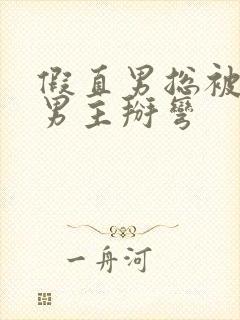 假直男捴被
男主掰彎
一舟河